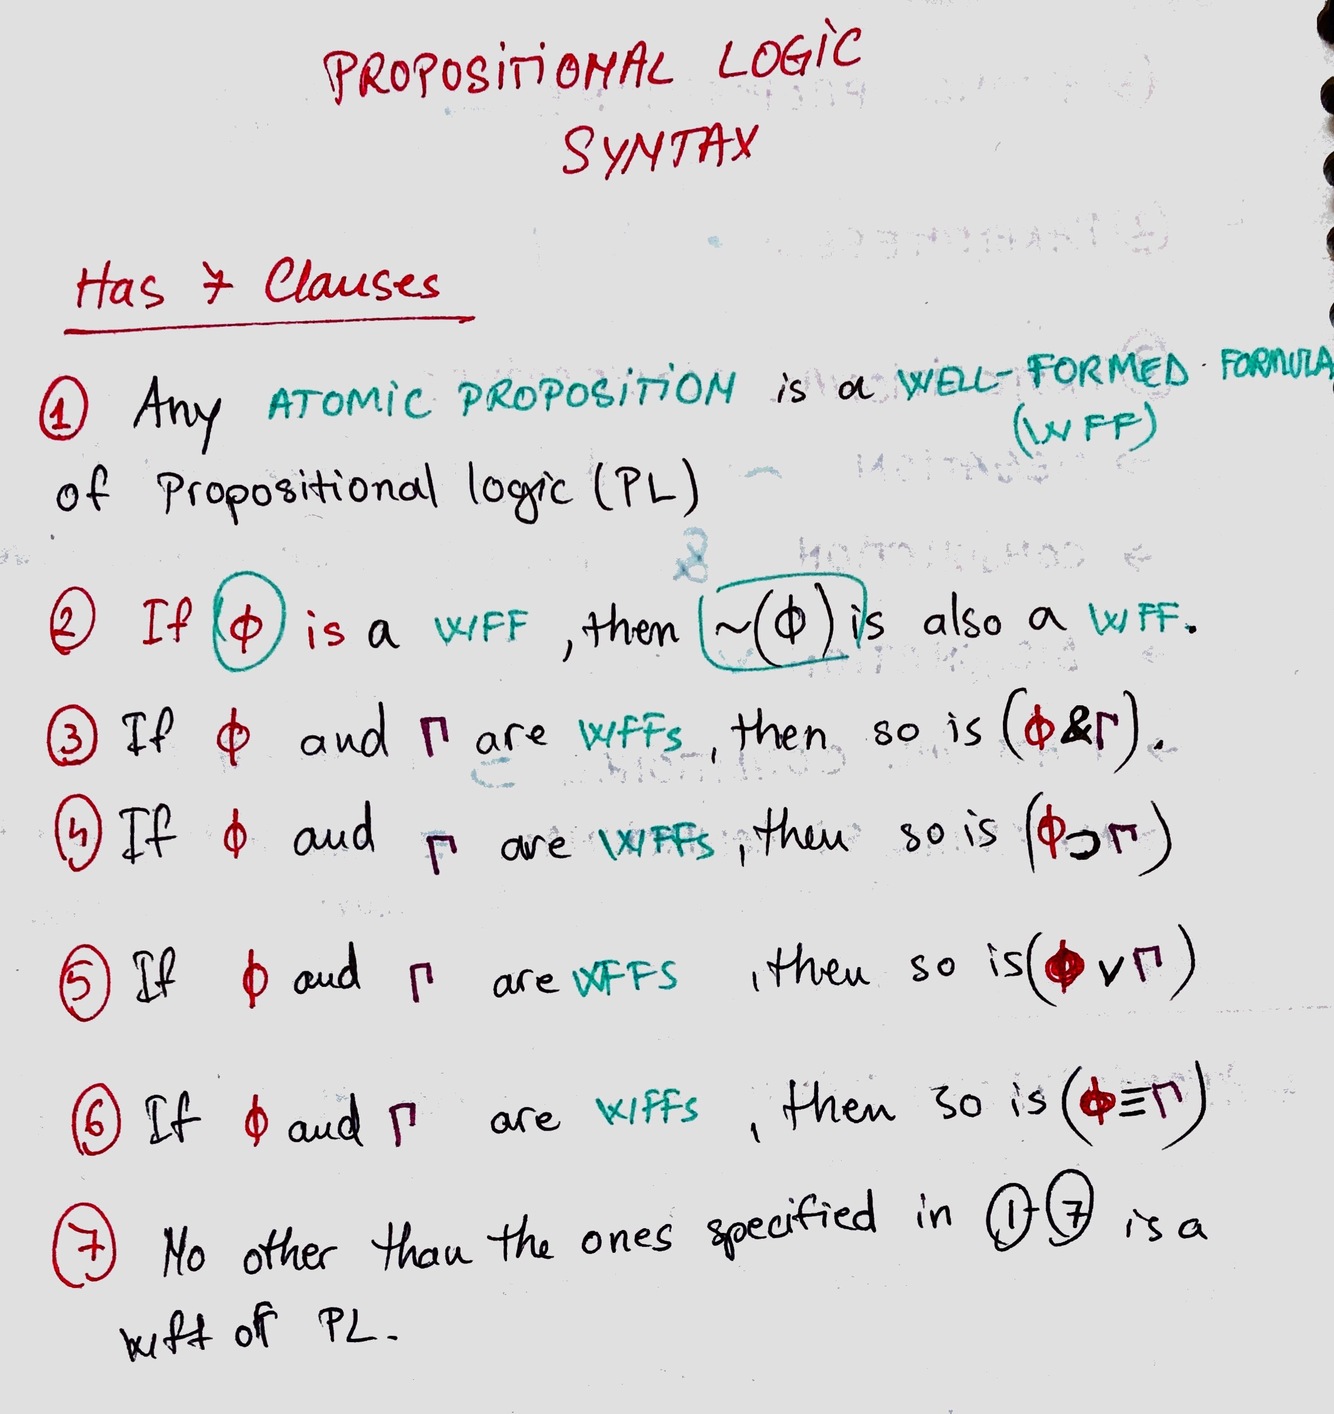 PROPOSITIONAL LOGIC
SYNTAX
Has 7 Clauses
① Any ATOMIC PROPOSITION is a WELL-FORMED FORMULA
(WFF)
of Propositional logic (PL)
② If ϕ is a WFF, then ~(ϕ) is also a WFF.
③ If ϕ and Γ are WFFs, then so is (ϕ&Γ).
④ If ϕ and Γ are WFFs, then so is (ϕ⊃Γ)
⑤ If ϕ and Γ are WFFS, then so is (ϕ∨Γ)
⑥ If ϕ and Γ are WFFs, then so is (ϕ≡Γ)
⑦ No other than the ones specified in ①-⑦ is a
wff of PL.